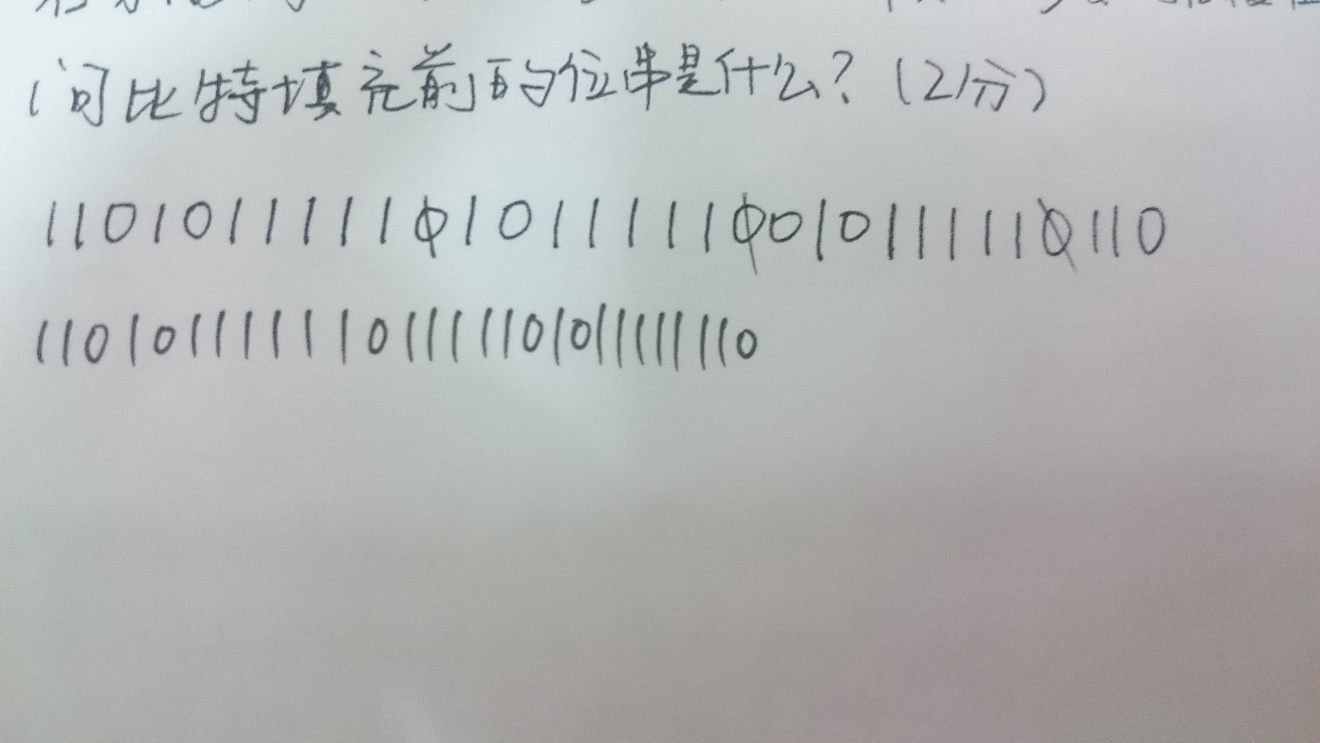 问比特填充前的位串是什么?(2分)
1101011111010111110010111110110
1101011111110111111010111111110